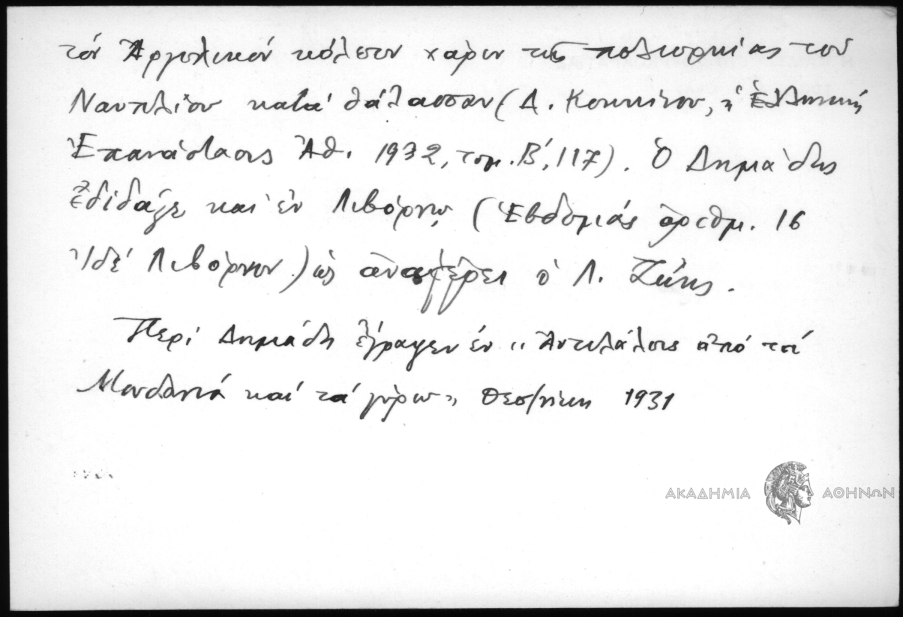 τόν Ἀργολικόν κόλπον χάριν τῆς πολιορκίας τοῦ
Ναυπλίου κατά θάλασσαν (Δ. Κοκκίνου, ἡ Ἑλληνική
Ἐπανάστασις Ἀθ. 1932, τομ. Β', 117). Ὁ Δημιάδης
ἐδίδαξε καί ἐν Λιβόρνῳ (Ἑβδομάς ἀριθμ. 16
Ἰδέ Λιβόρνον) ὡς ἀναφέρει ὁ Λ. Ζώης.
Περί Δημιάδη ἔγραψεν ἐν "Ἀντίλαλοι ἀπό τά
Μουδανιά καί τά γύρω" Θεσ/νίκη 1931
ΑΚΑΔΗΜΙΑ ΑΘΗΝΩΝ